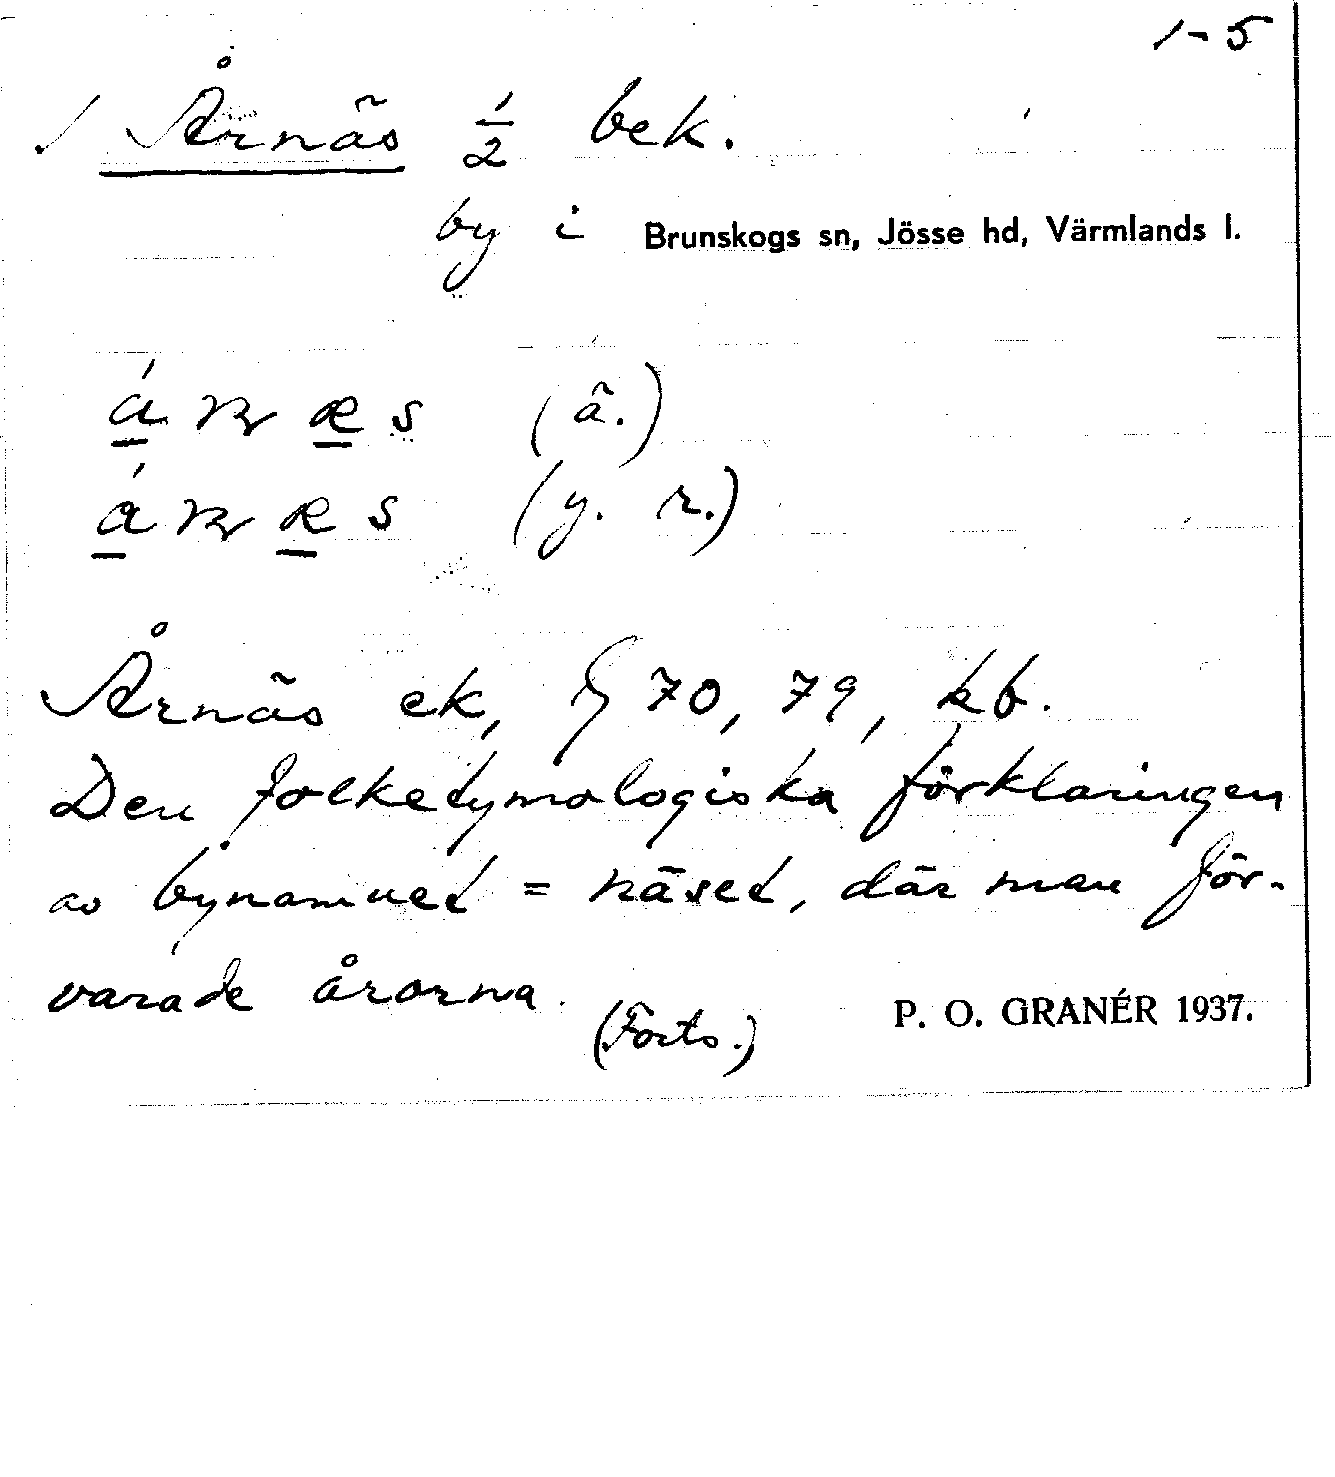 1-5
Årnäs ½ bek.
by i Brunskogs sn, Jösse hd, Värmlands l.
(ä.)
(y. r.)
Årnäs ek, § 70, 79, kb.
Den folketymologiska förklaringen
av bynamnet = näset, där man för-
varade årorna.
(Forts.) P. O. GRANÉR 1937.